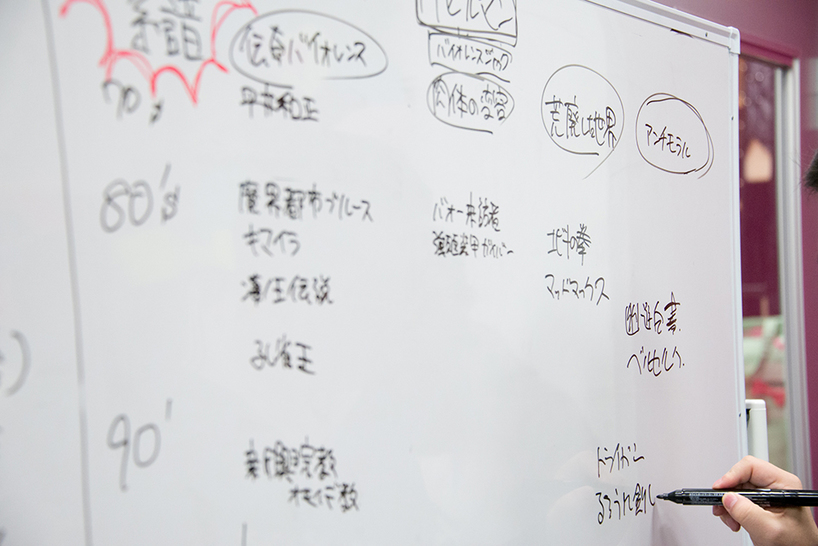 伝奇バイオレンス
バイオレンスジャック
肉体の変容
荒廃した世界
アンチモラル
70's
平井和正
80's
魔界都市ブルース
キマイラ
バオー来訪者
強殖装甲ガイバー
北斗の拳
マッドマックス
孔雀王
幽遊白書
ベルセルク
90'
新興宗教
ドライバー
るろうに剣し